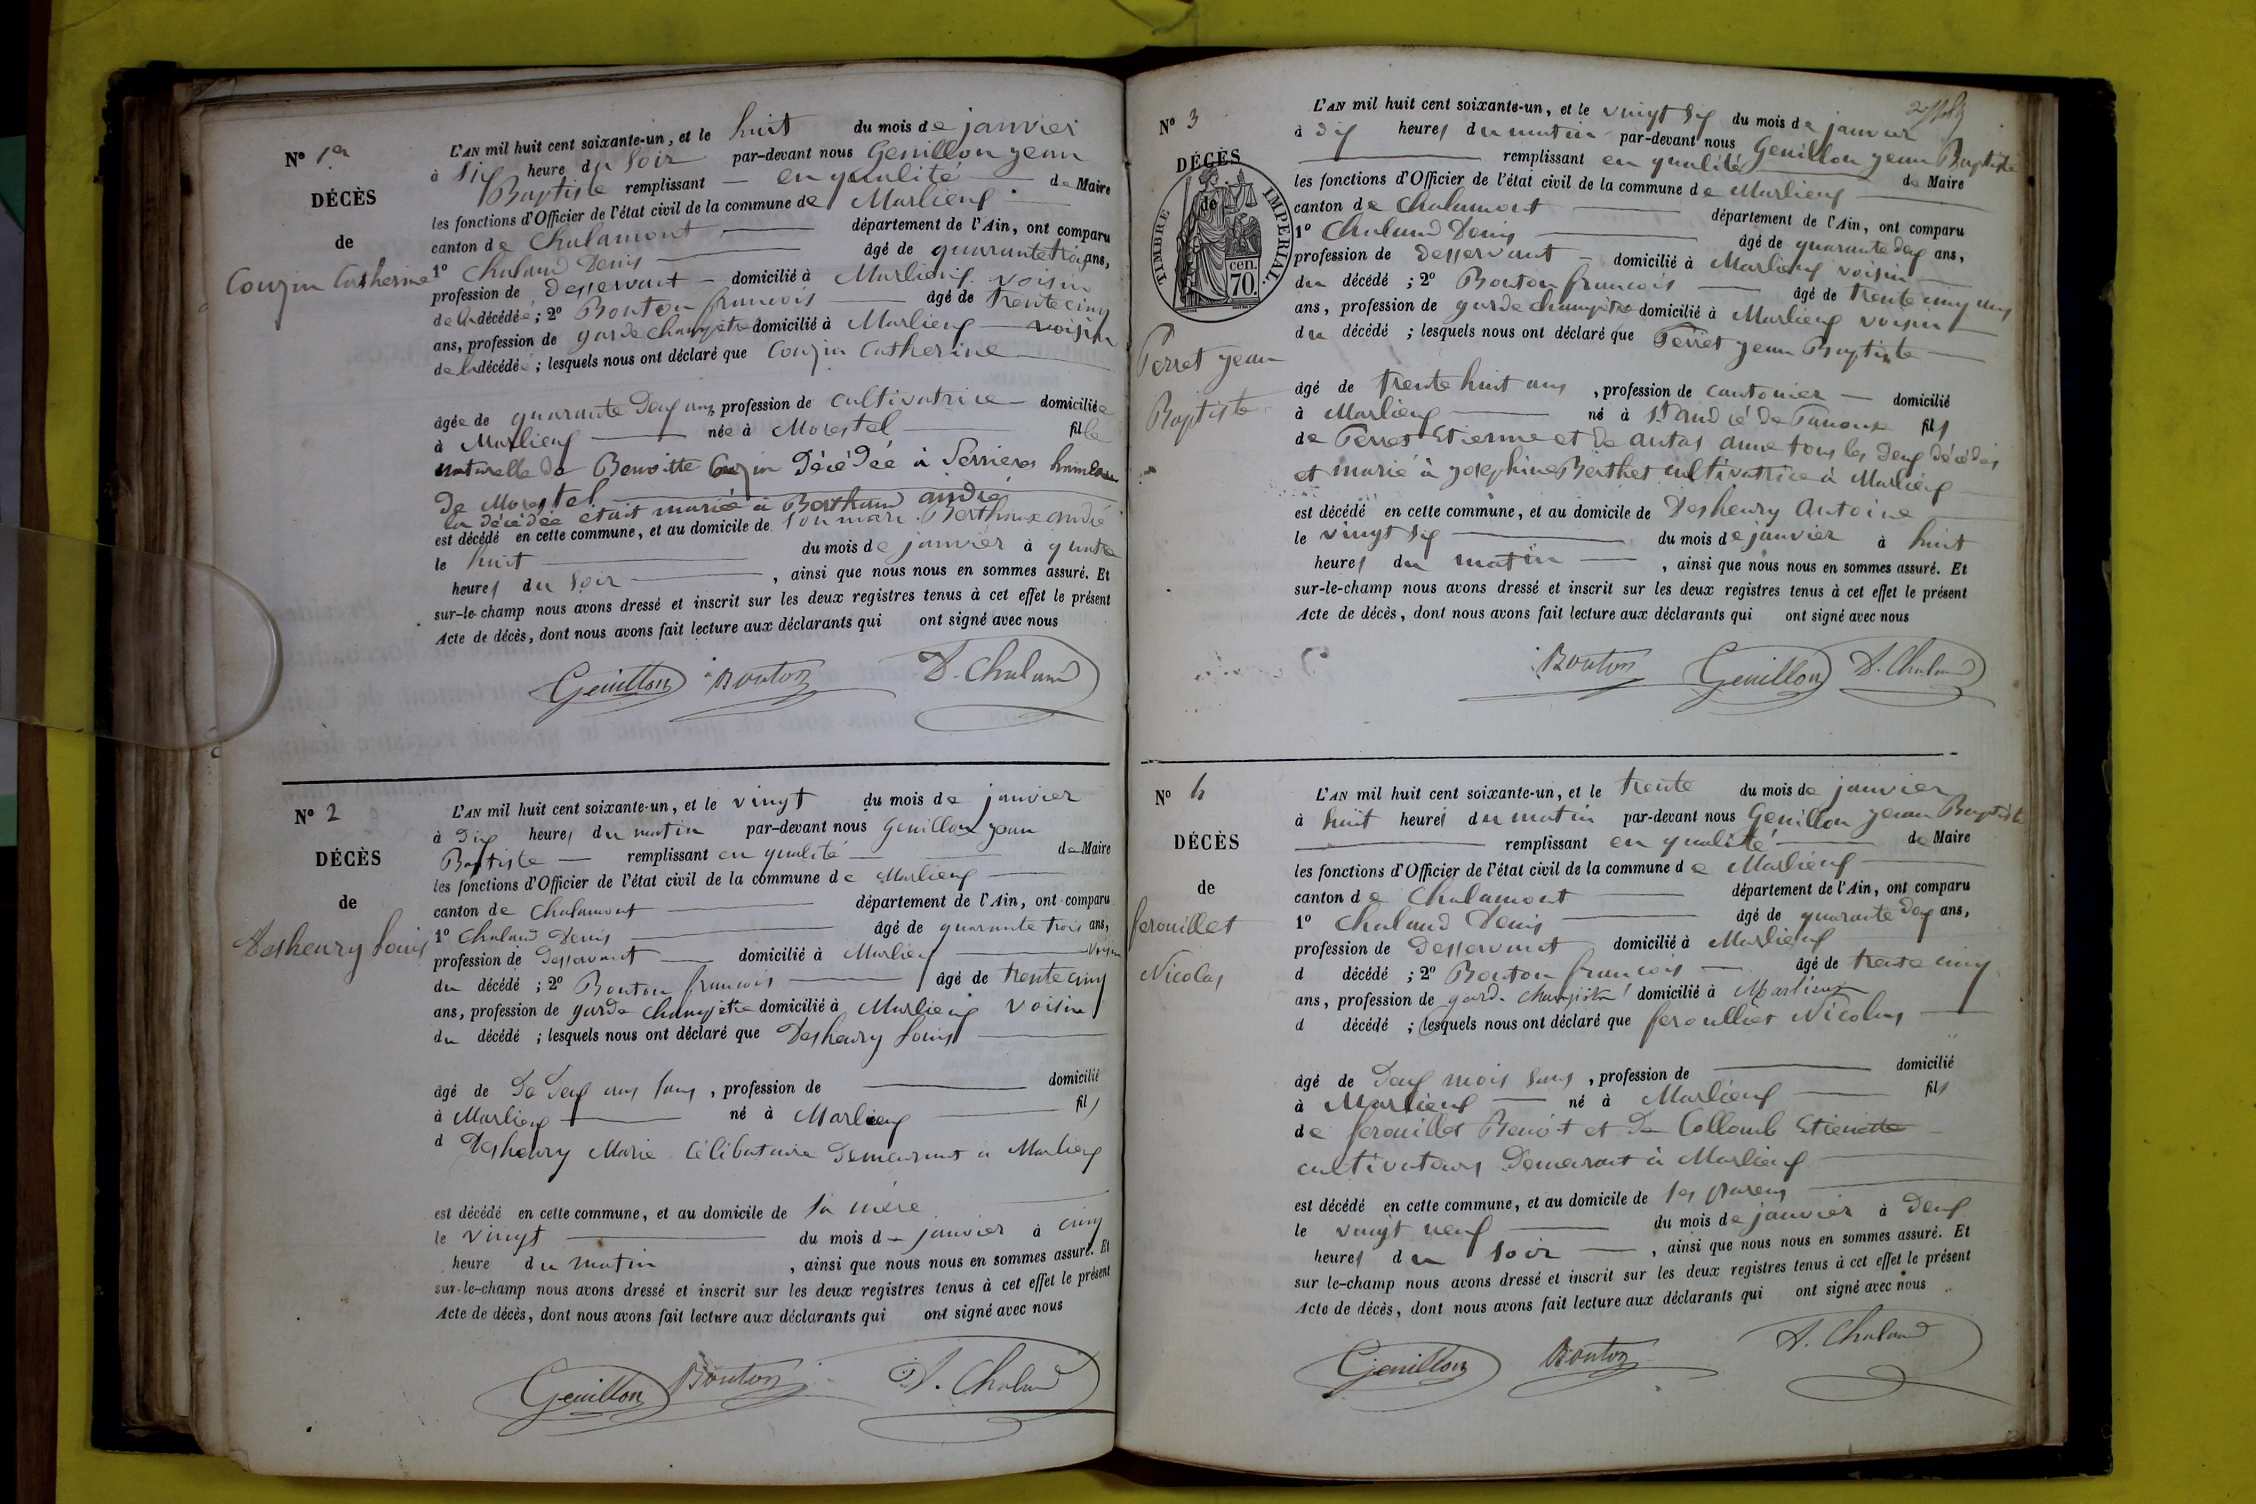 N° 1er
DÉCÈS
de
Couzin Catherine
L'AN mil huit cent soixante-un, et le huit du mois de janvier
à six heure du soir par-devant nous Genillon jean
Baptiste remplissant en qualité de Maire
les fonctions d'Officier de l'état civil de la commune de Marlieux
canton de Chalamont département de l'Ain, ont comparu
1° Chaland Denis âgé de quarante trois ans,
profession de desservant domicilié à Marlieux voisin
de la décédée ; 2° Bouton francois âgé de trente cinq
ans, profession de garde champêtre domicilié à Marlieux voisin
de la décédée ; lesquels nous ont déclaré que Couzin Catherine
âgée de quarante deux ans profession de cultivatrice domiciliée
à Marlieux née à Morestel fille
naturelle de Benoitte Couzin décédée à Serrières
de Morestel
la décédée était mariée à Berthaud andré
est décédé en cette commune, et au domicile de son mari andré
le huit du mois de janvier à quatre
heures du soir , ainsi que nous nous en sommes assuré. Et
sur-le-champ nous avons dressé et inscrit sur les deux registres tenus à cet effet le présent
Acte de décès, dont nous avons fait lecture aux déclarants qui ont signé avec nous
Genillon Bouton D. Chaland
N° 2
DÉCÈS
de
Desheury Louis
L'AN mil huit cent soixante-un, et le vingt du mois de janvier
à dix heures du matin par-devant nous Genillon jean
Baptiste remplissant en qualité de Maire
les fonctions d'Officier de l'état civil de la commune de Marlieux
canton de Chalamont département de l'Ain, ont comparu
1° Chaland Denis âgé de quarante trois ans,
profession de desservant domicilié à Marlieux voisin
du décédé ; 2° Bouton francois âgé de trente cinq
ans, profession de garde champêtre domicilié à Marlieux voisin
du décédé ; lesquels nous ont déclaré que Desheury Louis
âgé de de deux ans sans , profession de domicilié
à Marlieux né à Marlieux fils
d Desheury Marie célibataire demeurant à Marlieux
est décédé en cette commune, et au domicile de sa mère
le vingt du mois de janvier à cinq
heure du matin , ainsi que nous nous en sommes assuré. Et
sur-le-champ nous avons dressé et inscrit sur les deux registres tenus à cet effet le présent
Acte de décès, dont nous avons fait lecture aux déclarants qui ont signé avec nous
Genillon Bouton D. Chaland
N° 3
DÉCÈS
de
TIMBRE IMPÉRIAL.
cen.
70.
Perret jean
Baptiste
L'AN mil huit cent soixante-un, et le vingt six du mois de janvier
à dix heures du matin par-devant nous Genillon jean Baptiste
remplissant en qualité de Maire
les fonctions d'Officier de l'état civil de la commune de Marlieux
canton de Chalamont département de l'Ain, ont comparu
1° Chaland Denis âgé de quarante deux ans,
profession de desservant domicilié à Marlieux voisin
du décédé ; 2° Bouton francois âgé de trente cinq ans
ans, profession de garde champêtre domicilié à Marlieux voisin
du décédé ; lesquels nous ont déclaré que Perret jean Baptiste
âgé de trente huit ans , profession de cantonier domicilié
à Marlieux né à St andré de Panoux fils
de Perret Etienne et de anne tous les deux décédés
et marié à josephine Berthet cultivatrice à Marlieux
est décédé en cette commune, et au domicile de Desheury Antoine
le vingt six du mois de janvier à huit
heures du matin , ainsi que nous nous en sommes assuré. Et
sur-le-champ nous avons dressé et inscrit sur les deux registres tenus à cet effet le présent
Acte de décès, dont nous avons fait lecture aux déclarants qui ont signé avec nous
Bouton Genillon D. Chaland
N° 4
DÉCÈS
de
ferouillet
Nicolas
L'AN mil huit cent soixante-un, et le trente du mois de janvier
à huit heures du matin par-devant nous Genillon jean Baptiste
remplissant en qualité de Maire
les fonctions d'Officier de l'état civil de la commune de Marlieux
canton de Chalamont département de l'Ain, ont comparu
1° Chaland Denis âgé de quarante deux ans,
profession de desservant domicilié à Marlieux
d décédé ; 2° Bouton francois âgé de trente cinq
ans, profession de garde champêtre domicilié à Marlieux
d décédé ; lesquels nous ont déclaré que ferouillet Nicolas
âgé de deux mois sans , profession de domicilié
à Marlieux né à Marlieux fils
de ferouillet Benoit et de Collomb Etienette
cultivateurs demeurant à Marlieux
est décédé en cette commune, et au domicile de ses parens
le vingt neuf du mois de janvier à deux
heures du soir , ainsi que nous nous en sommes assuré. Et
sur le-champ nous avons dressé et inscrit sur les deux registres tenus à cet effet le présent
Acte de décès, dont nous avons fait lecture aux déclarants qui ont signé avec nous
Genillon Bouton D. Chaland